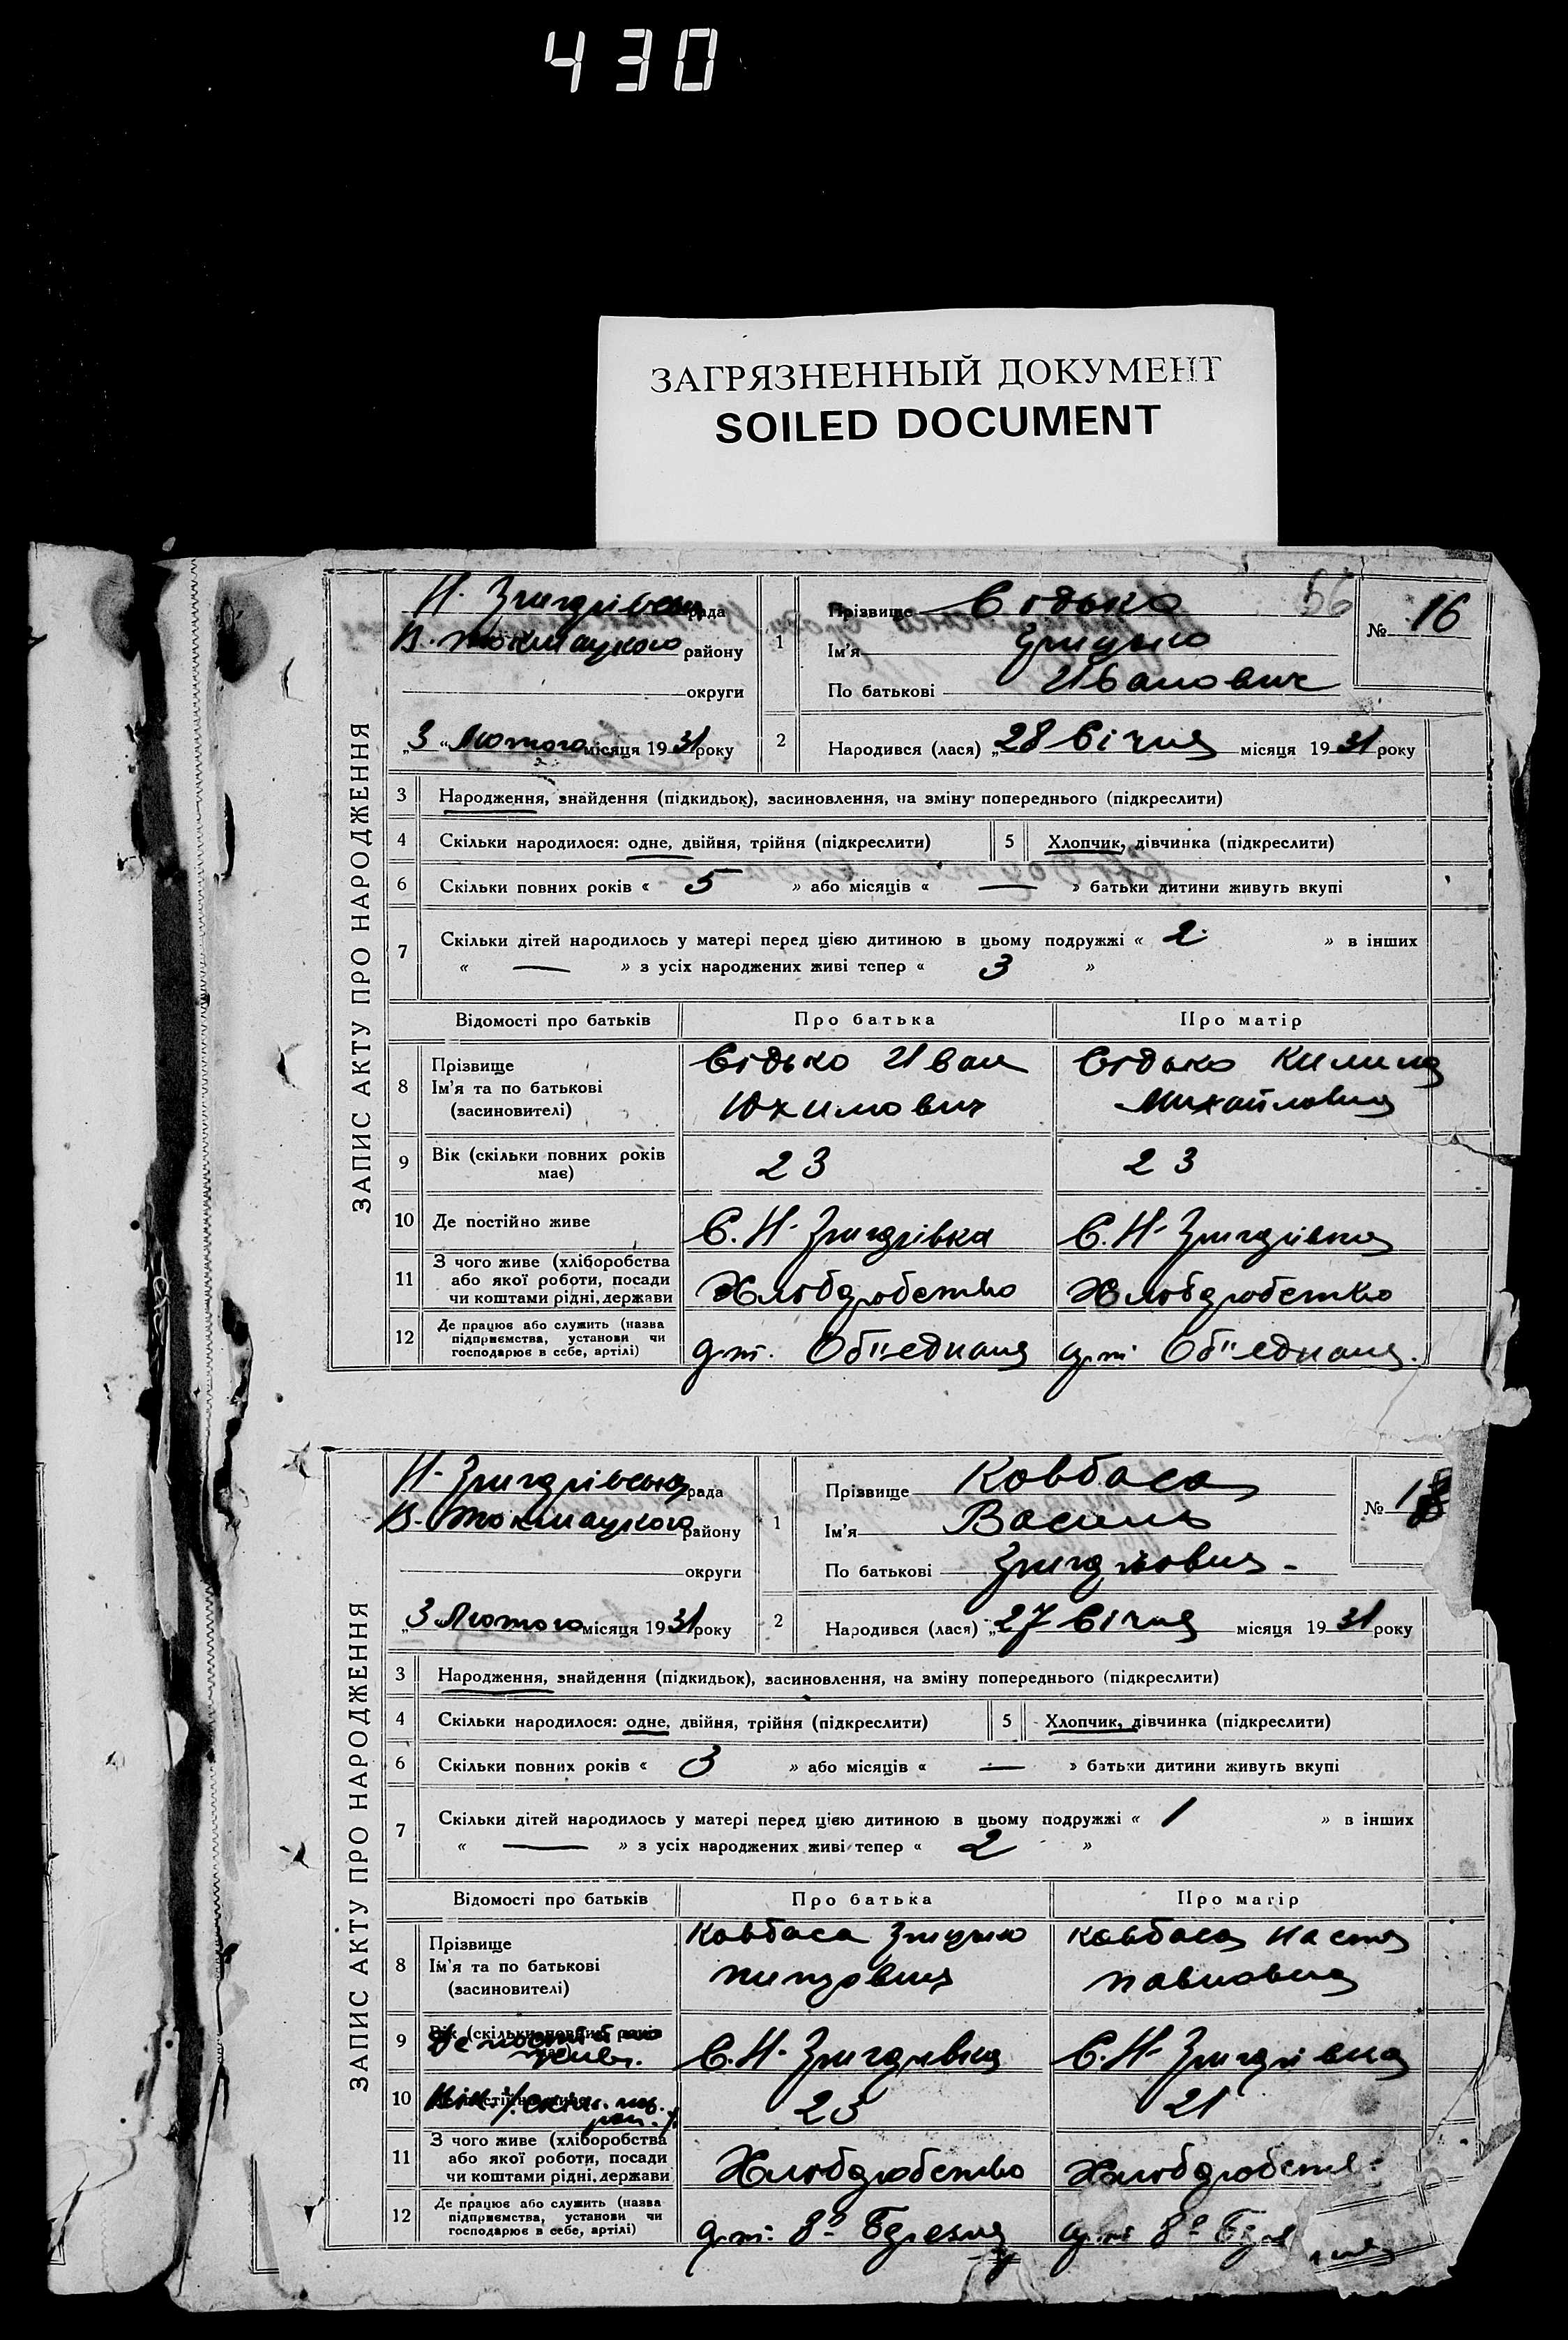 430
ЗАГРЯЗНЕННЫЙ ДОКУМЕНТ
SOILED DOCUMENT
56
ЗАПИС АКТУ ПРО НАРОДЖЕННЯ
рада
В. Токмацького району
округи
„3 “ Лютого місяця 1931 року
1
Прізвище Сідько
Ім'я Грицько
По батькові Иванович
№ 16
2
Народився (лася) „28 Січня місяця 1931 року
3 Народження, знайдення (підкидьок), засиновлення, на зміну попереднього (підкреслити)
4 Скільки народилося: одне, двійня, трійня (підкреслити)
5 Хлопчик, дівчинка (підкреслити)
6 Скільки повних років « 5 » або місяців « — » батьки дитини живуть вкупі
7 Скільки дітей народилось у матері перед цією дитиною в цьому подружжі « 2 » в інших
« — » з усіх народжених живі тепер « 3 »
Відомості про батьків Про батька Про матір
8 Прізвище
Ім'я та по батькові
(засиновителі)
Сідько Иван
Юхимович
Сідько Килина
Михайловна
9 Вік (скільки повних років
має)
23 23
10 Де постійно живе С. Н-Григрівка С. Н-Григрівка
11 З чого живе (хліборобства
або якої роботи, посади
чи коштами рідні, держави
Хлібдробство Хлібдробство
12 Де працює або служить (назва
підприємства, установи чи
господарює в себе, артілі)
арт. Об'єднана арт. Об'єднана.
ЗАПИС АКТУ ПРО НАРОДЖЕННЯ
рада
В. Токмацького району
округи
„3 Лютого місяця 1931 року
1
Прізвище Ковбаса
Ім'я Василь
По батькові
№
2
Народився (лася) „27 Січня місяця 1931 року
3 Народження, знайдення (підкидьок), засиновлення, на зміну попереднього (підкреслити)
4 Скільки народилося: одне, двійня, трійня (підкреслити)
5 Хлопчик, дівчинка (підкреслити)
6 Скільки повних років « 3 » або місяців « — » батьки дитини живуть вкупі
7 Скільки дітей народилось у матері перед цією дитиною в цьому подружжі « 1 » в інших
« — » з усіх народжених живі тепер « 2 »
Відомості про батьків Про батька Про матір
8 Прізвище
Ім'я та по батькові
(засиновителі)
Ковбаса Грицько
Ковбаса Настя
Павловна
9 Де постійно
живе.
С. Н-Григрівка С. Н-Григрівка
10 23 21
11 З чого живе (хліборобства
або якої роботи, посади
чи коштами рідні, держави
Хлібдробство
12 Де працює або служить (назва
підприємства, установи чи
господарює в себе, артілі)
арт. 8º Березня арт. 8º